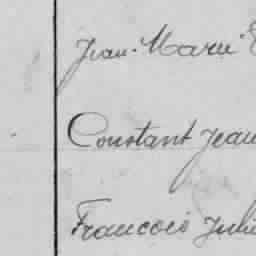 Jean-Marie
Constant Jean
Francois Juli